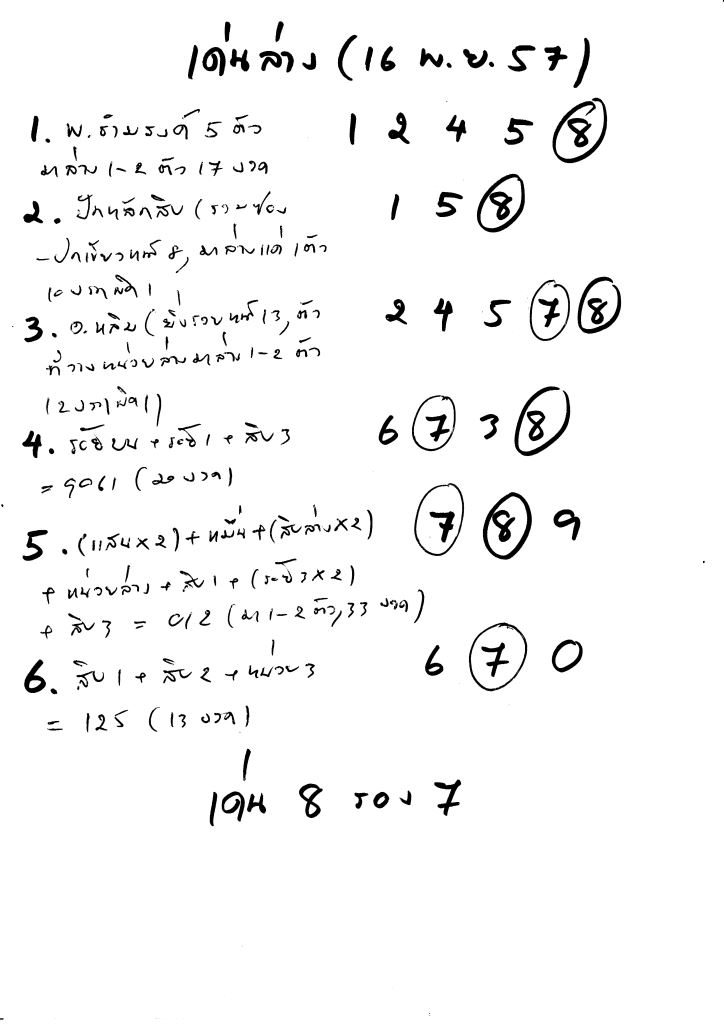 เด่นล่าง (16 พ.ย. 57)
1. พ.ธำมรงค์ 5 ตัว 1 2 4 5 8
มาล่าง 1-2 ตัว 17 งวด
2. ปักหลักสิบ ( 1 5 8
8, มาล่างแค่ 1 ตัว
10 งวดผิด 1
3. อ.หลิม ( 13, ตัว 2 4 5 7 8
ที่วางหน่วยล่างมาล่าง 1-2 ตัว
12 งวดผิด 1)
4. + + สิบ 3 6 7 3 8
= 9061 (20 งวด)
5. (แสน x 2) + หมื่น + (สิบล่าง x 2) 7 8 9
+ หน่วยล่าง + สิบ 1 + ( 3 x 2)
+ สิบ 3 = 012 (มา 1-2 ตัว, 33 งวด)
6. สิบ 1 + สิบ 2 + หน่วย 3 6 7 0
= 125 (13 งวด)
เด่น 8 รอง 7